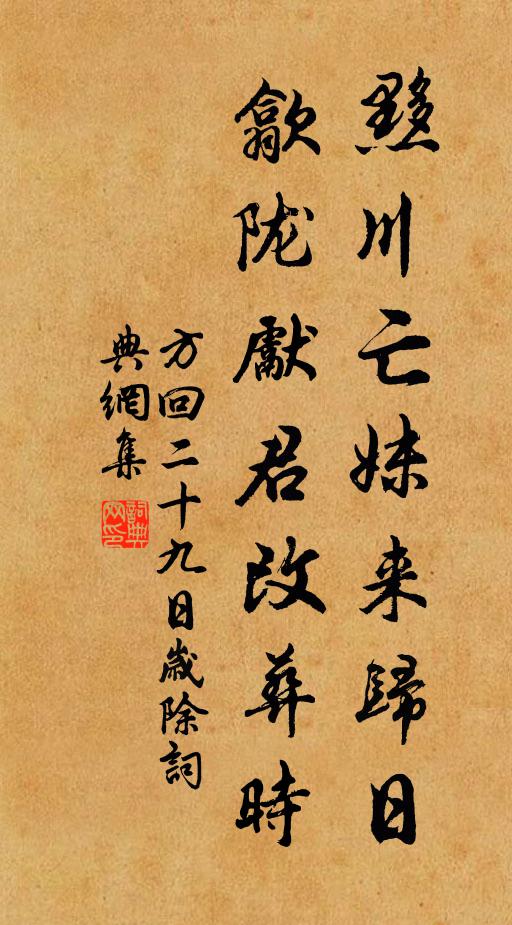 黟川亡妹来歸日
歙陇獻君改葬時
方回二十九日歲除詞
典網集
詞典网印